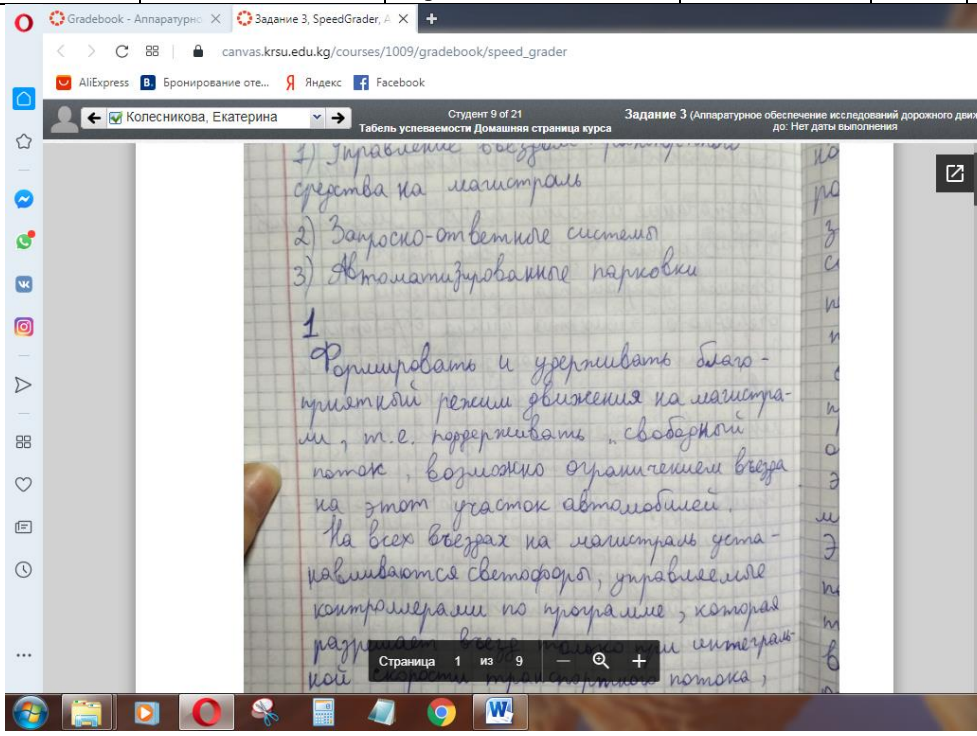 Gradebook - Аппаратурно
Задание 3, SpeedGrader, А
canvas.krsu.edu.kg/courses/1009/gradebook/speed_grader
AliExpress
Бронирование оте...
Яндекс
Facebook
Колесникова, Екатерина
Студент 9 of 21
Табель успеваемости Домашняя страница курса
Задание 3 (Аппаратурное обеспечение исследований дорожного движ
до: Нет даты выполнения
1) Управление въездом
средства на магистраль
2) Запросно-ответные системы
3) Автоматизированные парковки
1
Формировать и удерживать благо-
приятный режим движения на магистра-
ли, т.е. поддерживать „свободный
поток, возможно ограничением въезда
на этот участок автомобилей.
На всех въездах на магистраль уста-
навливаются светофоры, управляемые
контроллерами по программе, которая
разрешает въезд только при интеграль-
ной скорости транспортного потока,
Страница 1 из 9